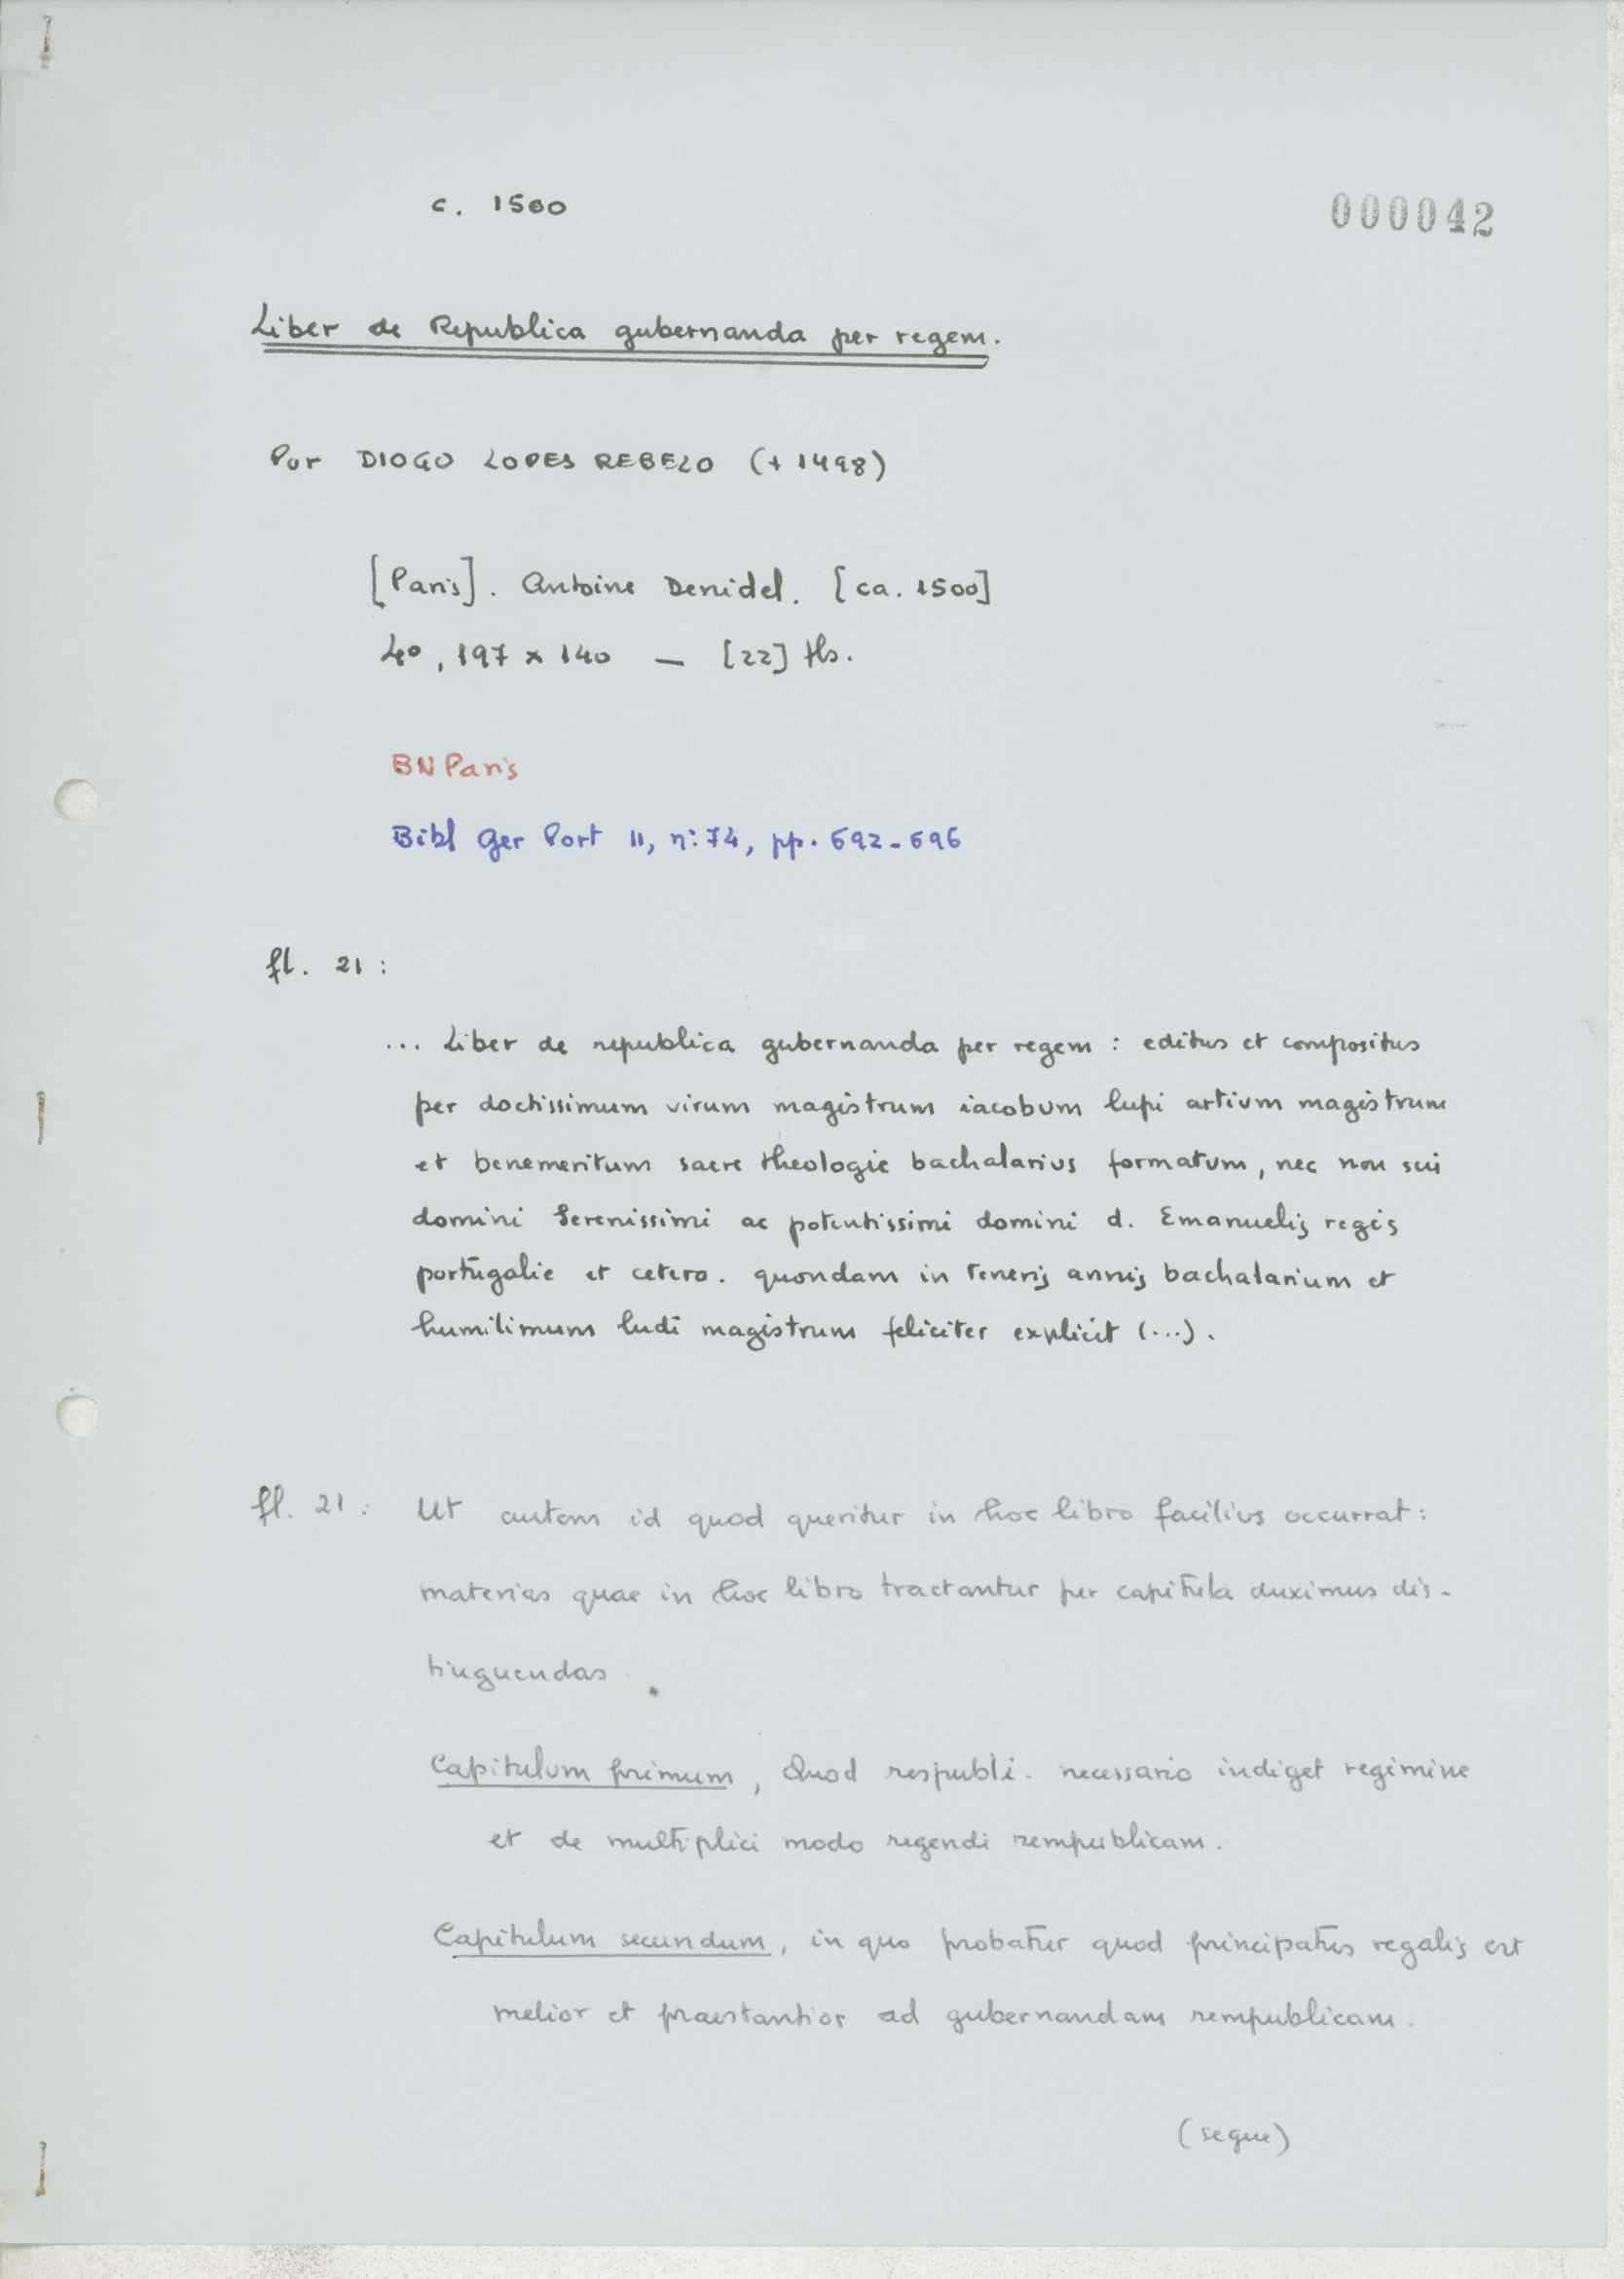 c. 1500
000042
Liber de Republica gubernanda per regem.
Por DIOGO LOPES REBELO (+ 1498)
[Paris]. Antoine Denidel. [ca. 1500]
4º, 197 x 140 — [22] fls.
BN Paris
Bibl Ger Port II, nº 74, pp. 692-696
fl. 21 :
... Liber de republica gubernanda per regem : editus et compositus
per doctissimum virum magistrum iacobum lupi artium magistrum
et benemeritum sacre theologie bachalarius formatum, nec non sui
domini Serenissimi ac potentissimi domini d. Emanuelis regis
portugalie et cetero. quondam in teneris annis bachalarium et
humilimum ludi magistrum feliciter explicit (...).
fl. 21 : Ut autem id quod queritur in hoc libro facilius occurrat :
materias quae in hoc libro tractantur per capitula duximus dis-
tinguendas.
Capitulum primum, Quod respubli. necessario indiget regimine
et de multiplici modo regendi rempublicam.
Capitulum secundum, in quo probatur quod principatus regalis est
melior et praestantior ad gubernandam rempublicam.
(segue)